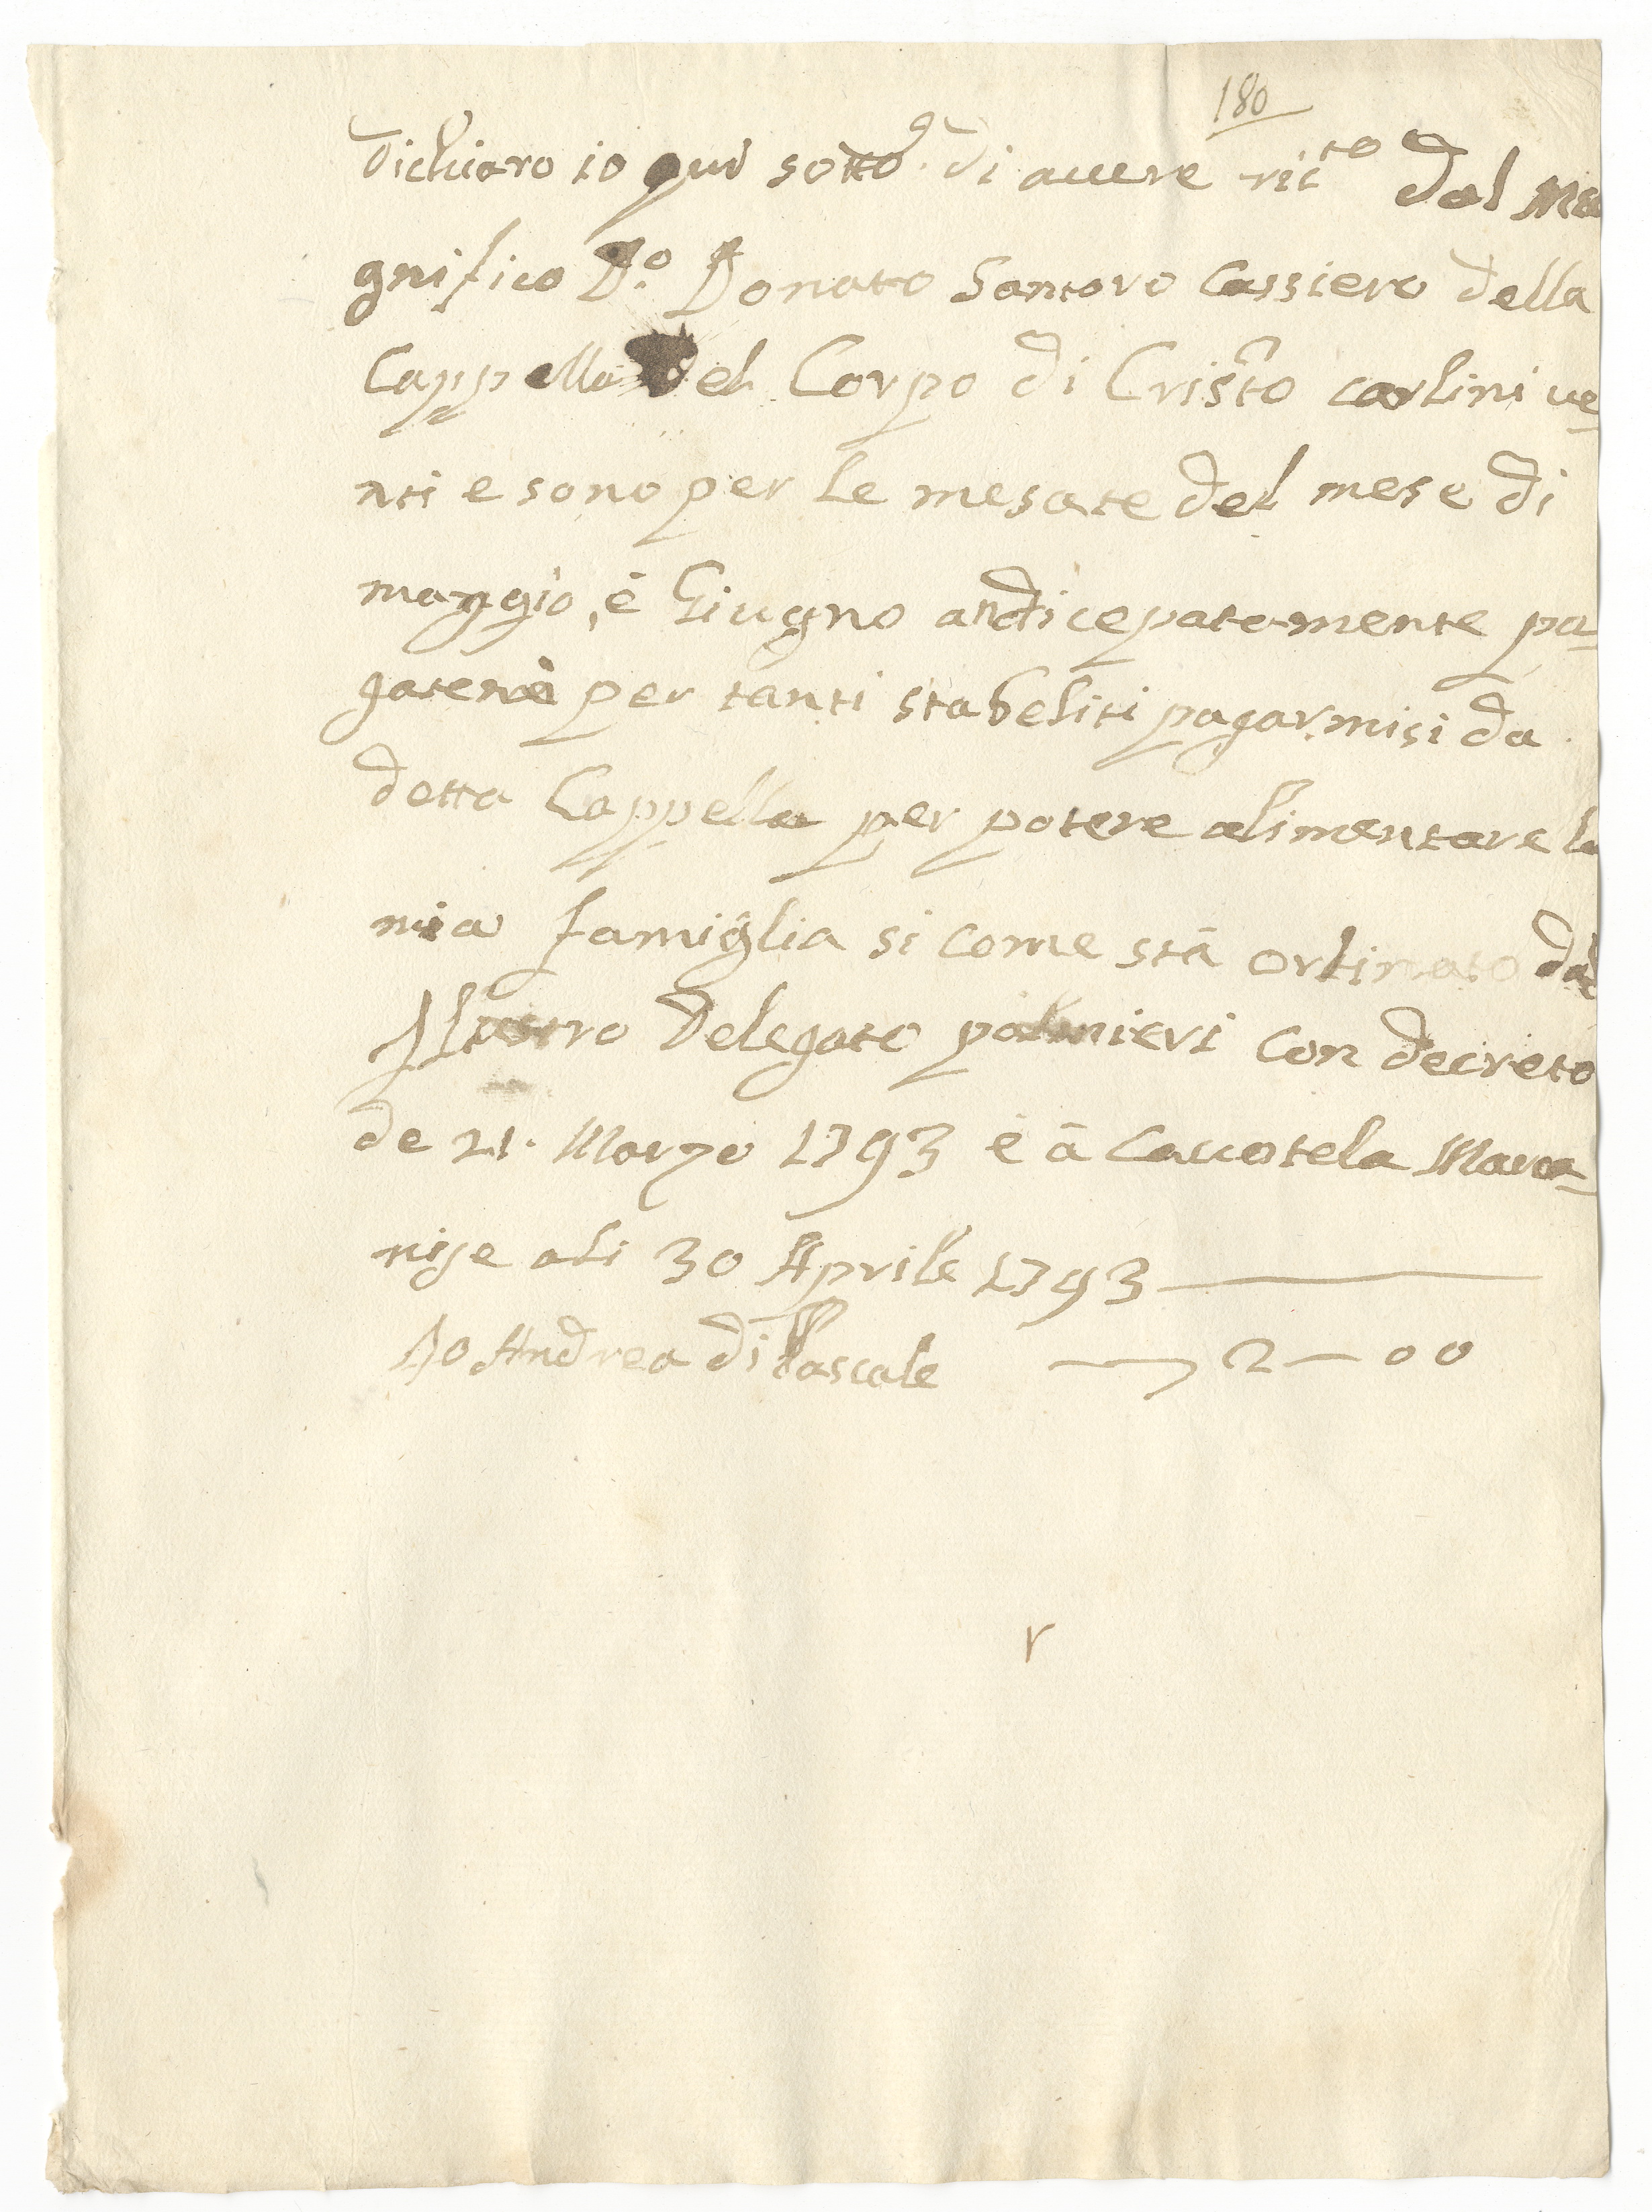 180
Dichiaro io qui sotto. di auere ric.to Dal Ma
gnifico D.o Donato Santoro Cassiero della
Cappella del Corpo di Cristo carlini ve
nti e sono per le mesate del mese di
maggio, è Giugno andicepatemente pa-
gatene per tanti stabeliti pagarmisi da
detta Cappella per potere alimentare la
mia famiglia si come stà ortinato dal
Delegato palmieri con decreto
de 21. Marzo 1793 è à Caucotela Marca-
nise ali 30 Aprile 1793
Io Andrea di Pascale 2-00